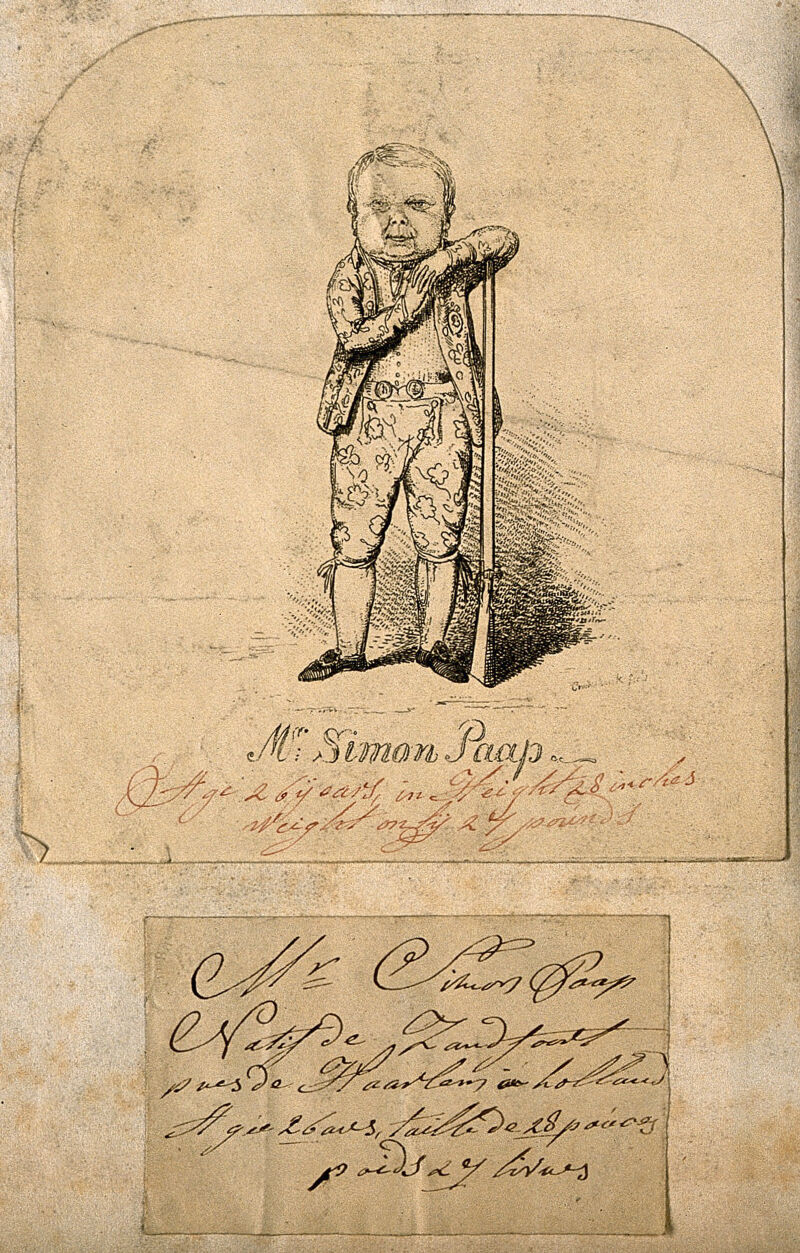 Cruikshank fect
Mr. Simon Paap.
Age 26 years, in Height 28 inches
weight only 27 pounds
Mr Simon Paap
Natif de Zandfoort
pres de Haarlem en holland
Agée 26 ans, taille de 28 pouces
poids 27 livres